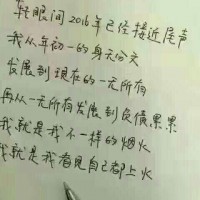 转眼间2016年已经接近尾声
我从年初一的身无分文
发展到现在的一无所有
再从一无所有发展到负债累累
我就是我不一样的烟火
我就是我看见自己都上火